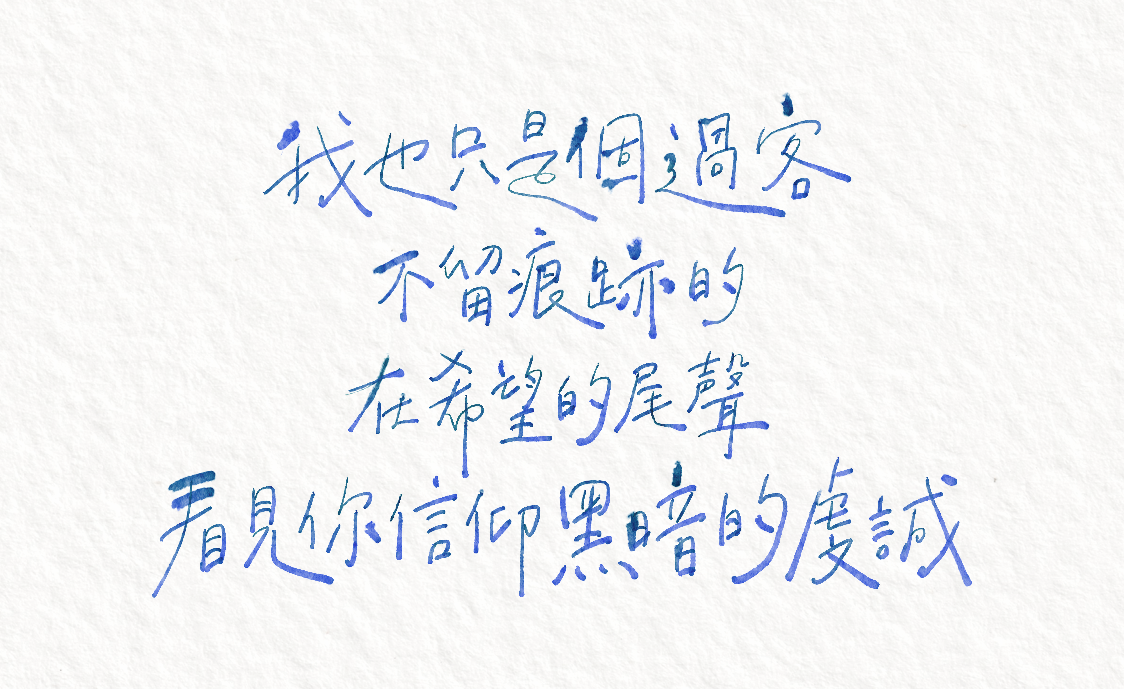 我也只是個過客
不留痕跡的
在希望的尾聲
看見你信仰黑暗的虔誠